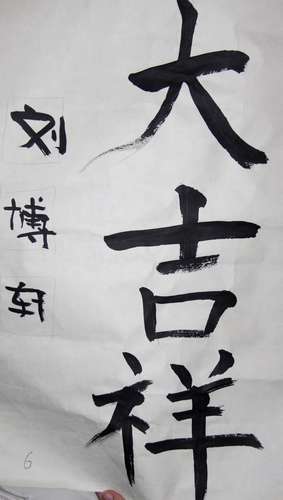 大吉祥
刘博轩
6